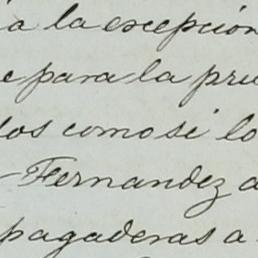 a la excepción
para la pru
los como si lo
Fernandez a
pagaderas a